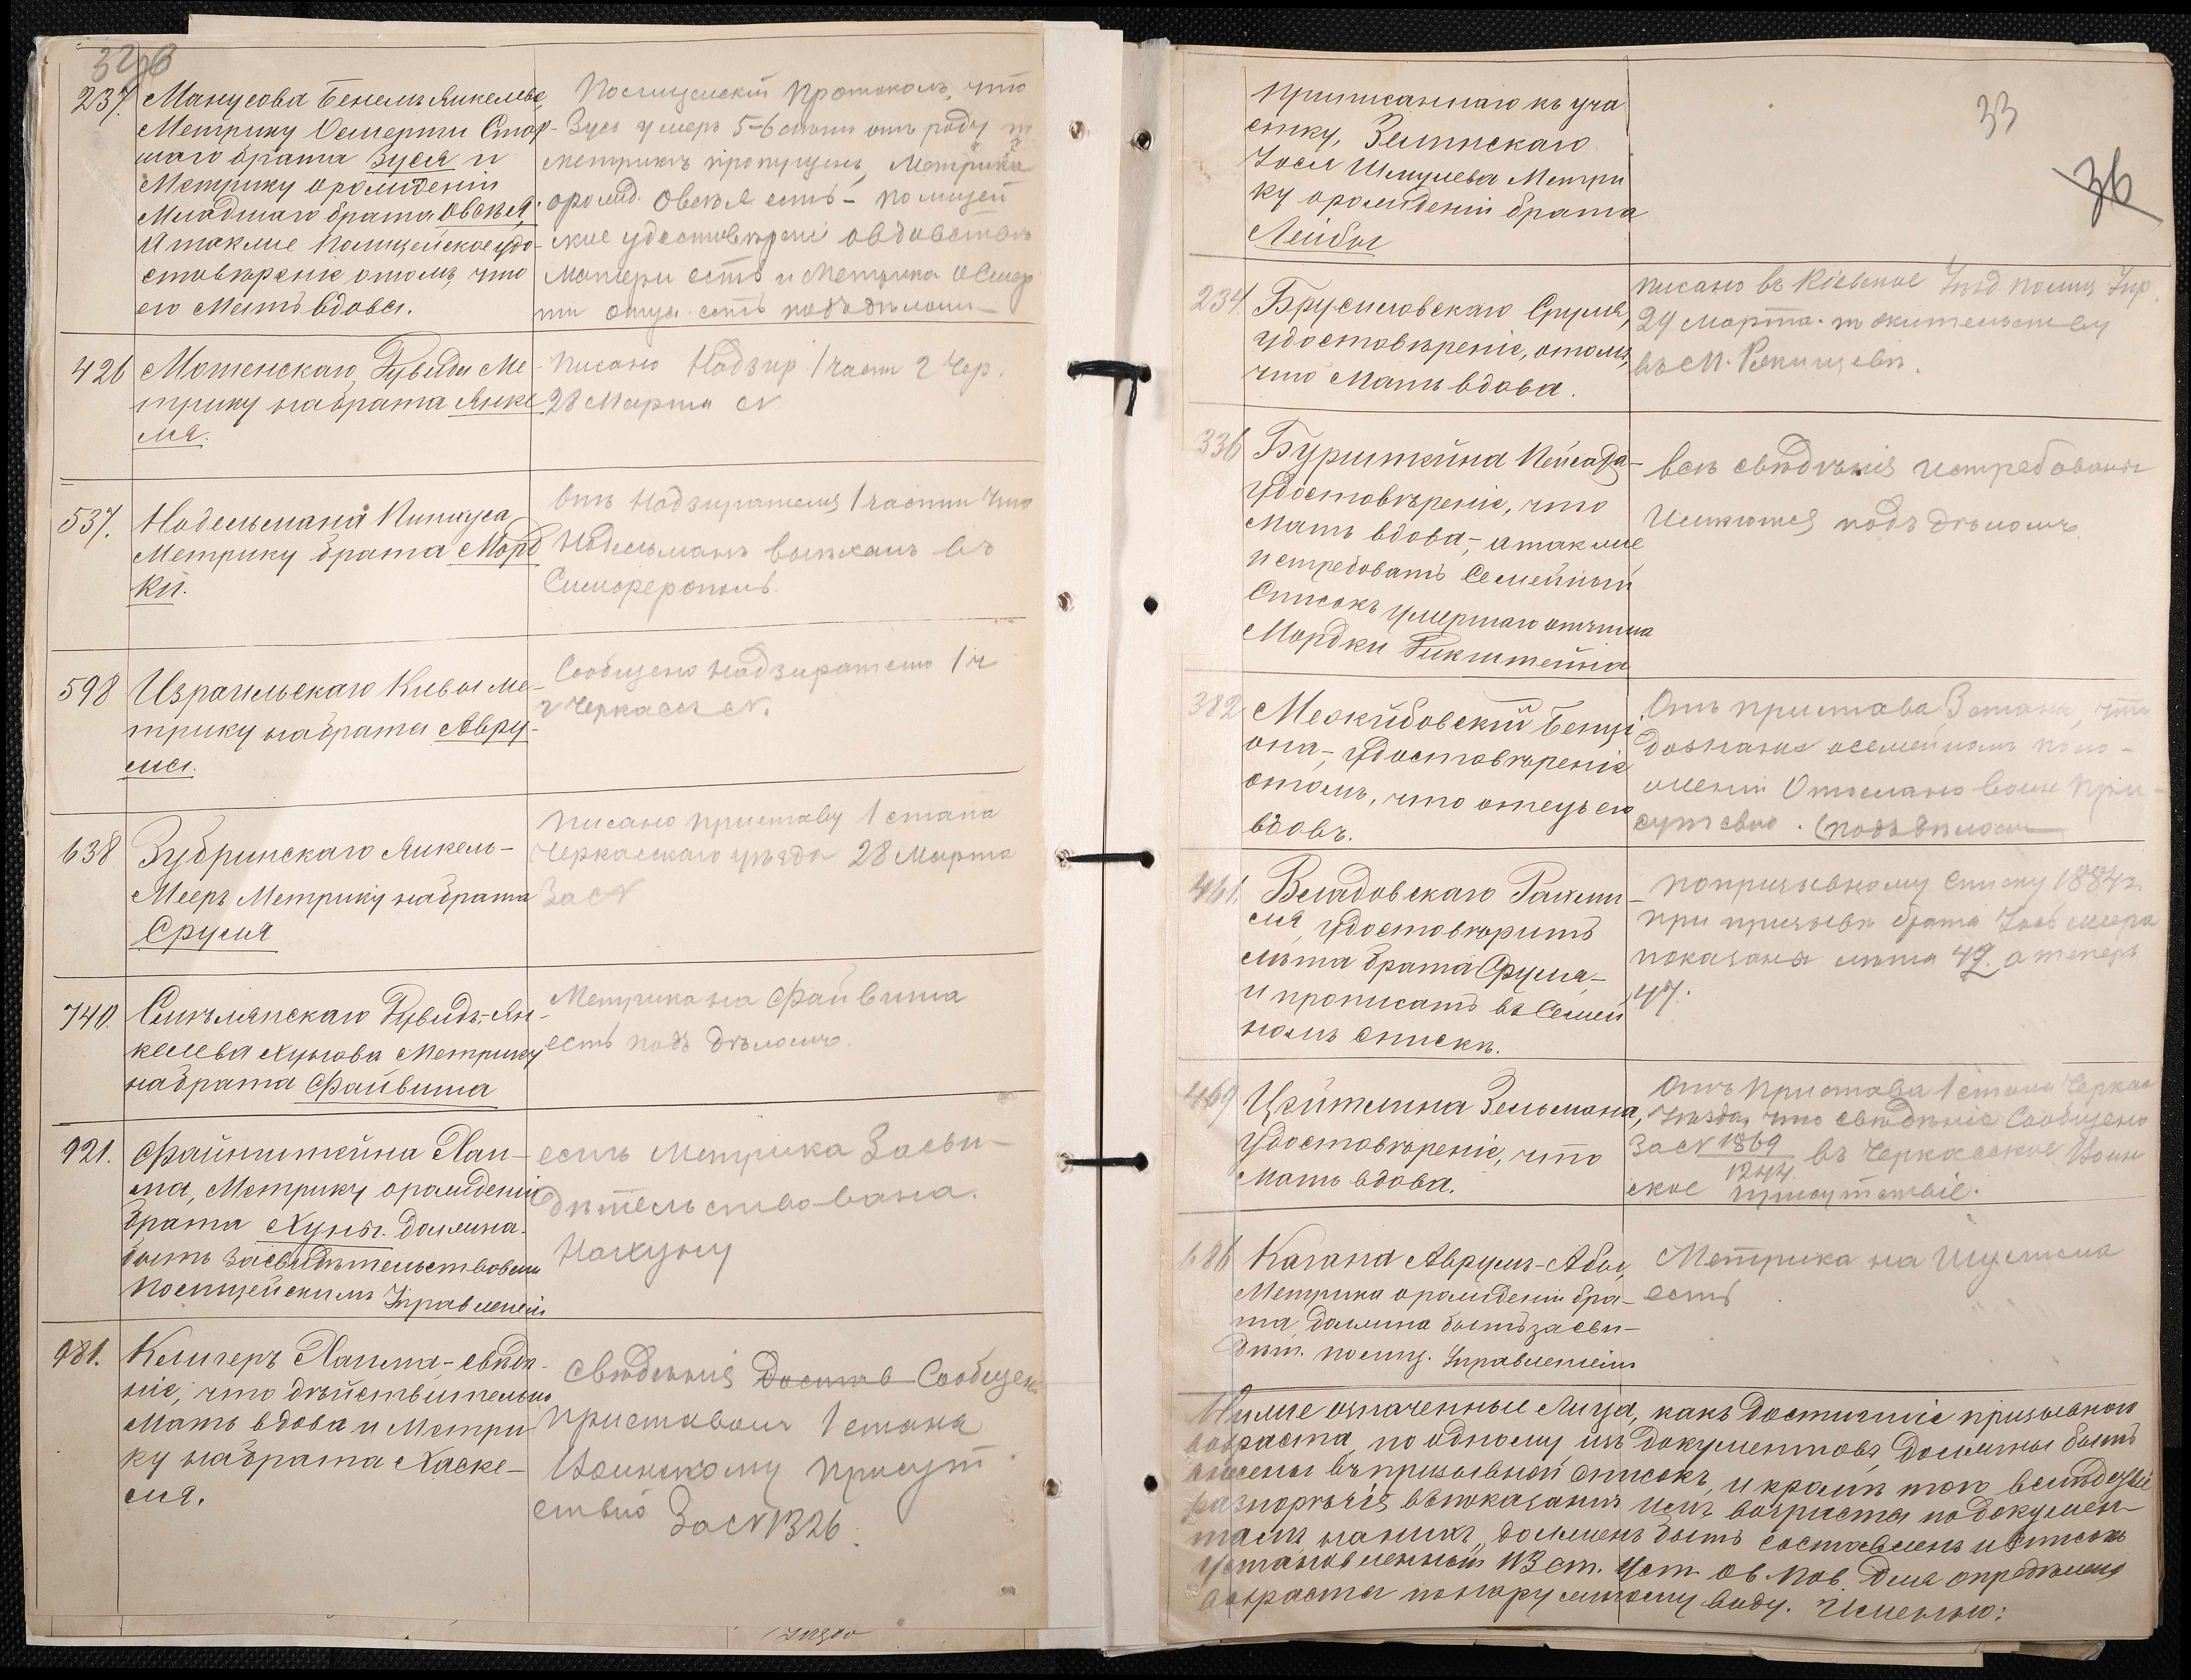 32об
237. Манусова Бенемъ Янкелева,
Метрику Осмерти Стар-
шаго брата Зуся и
Метрику орожденіи
Младшаго брата Овсѣя,
А также Полицейское удо-
стовѣреніе отомъ, что
его Мать вдова.
Полицейскій протоколъ, что
Зусь умеръ 5-6 отъ роду
метрикѣ пропущенъ, Метрика
орожд. Овсѣя есть – полицей
ское удостовѣреніе овдовствѣ
матери есть и Метрика о Смер
ти отца есть подъ дѣломъ
426 Мошенскаго, Дувида Ме-
трику набрата Янке
ля.
Писано Надзир 1 части г Чер.
28 Марта N
537. Надельмана Пинхуса
Метрику брата Морд
ки.
Отъ Надзирателя 1 части что
Надельманъ выѣхалъ въ
Симферополь.
598 Израильскаго Кивы ме-
трику набрата Авру-
ма.
Сообщено Надзирателю 1 ч
г Черкассъ N.
638 Зубринскаго Янкель-
Мееръ Метрику набрата
Сруля
Писано приставу 1 стана
Черкасскаго уѣзда 28 Марта
За N
740. Смѣлянскаго Дувидъ-Ян-
келева Хунова Метрику
набрата Файвиша
Метрика на Файвиша
есть подъ дѣломъ.
921. Файнштейна Хаи-
ма, Метрику орожденіи
брата Хуны. Должна
быть Засвидѣтельствована
Полицейскимъ Управленіем
есть Метрика Засви-
дѣтельствована.
Нахуну
981. Келигеръ Хаима, - свѣдѣ-
ніе, что дѣйствительно
Мать вдова и Метри
ку набрата Хаске-
ля.
Свѣденія Достав Сообщен
приставомъ 1 стана
Воинскому присут
ствію За N 1326.
33
36
приписаннаго къ уча
стку, Зелинскаго
Іося Шмулева Метри
ку орожденіи брата
Лейбы
234. Брусиловскаго Сруля,
удостовѣреніе, отомъ,
что Мать вдова.
писано въ Кіевское Уѣзд полиц Упр.
29 Марта. по жительству
въ М.
336 Бурштейна Пейсаха-
Удостовѣреніе, что
Мать вдова, - атакже
истребовать Семейный
Списокъ умершаго отчима
Мордки Рикштейна
всѣ свѣдѣнія истребованы
Имѣются подъ дѣломъ
382 Межибовскій Бенці
она, - удостовѣреніе
отомъ, что отецъ его
вдовъ.
Отъ пристава 3 стана, что
дознаніе осемейномъ поло-
женіи Отослано Воин При-
сутствію. (подъ дѣломъ
461. Владовскаго Рахми
ля, удостовѣрить
лѣта брата Фрума, -
и прописать въ Семей
номъ спискѣ.
попризывному Списку 1884г
при призывѣ брата Іось Меера
показаны лѣта 49. а теперь
47.
469 Цейтлина Зельмана,
Удостовѣреніе, что
Мать вдова.
Отъ Пристава 1 стана Черкас
Уѣзда, что свѣдѣніе Сообщено
За N 1869
1244 въ Черкасское Воин
ское присутствіе.
686 Кагана Аврумъ-Абы,
Метрика орожденіи бра-
та, должна быть засви-
дѣт. полиц. Управленіем
Метрика на Шулима
есть
Ниже означенные Лица, какъ Достигшіе призывного
возраста, по одному изъ документовъ, должны быть
внесены въ призывной списокъ, и кромѣ того вслѣдствіе
разнорѣчія въ показаніи ихъ возраста по докумен-
тамъ, на нихъ, долженъ быть составленъ и Списокъ
установленный 113 ст. Уст. ов. пов. Для опредѣленія
возраста по наружному виду. Именно: